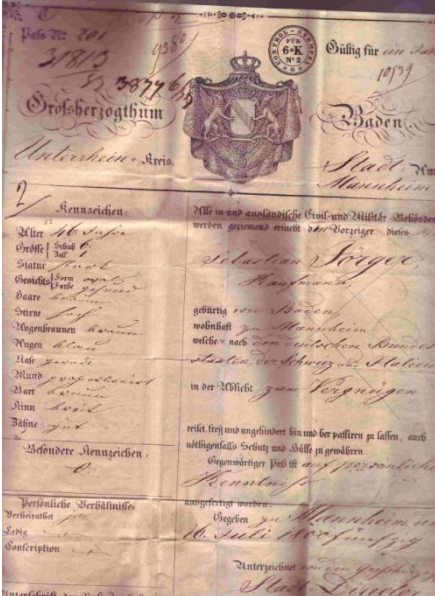 Paß Nr. 201
31813
3877
Gültig für ein
CONTROL-STEMPEL
FÜR
6·K
Nº 2
10539
Großherzogthum
Baden.
Unterrhein-Kreis.
Stadt-Am
Mannheim
2
Kennzeichen:
Alter 46 Jahre
Größe Schuh 6
Zoll
Statur stark
Gesichts Form oval
Farbe gesund
Haare braun
Stirne hoch
Augenbraunen braun
Augen blau
Nase gerade
Mund proportionirt
Bart braun
Kinn breit
Zähne gut
Besondere Kennzeichen:
0.
Persönliche Verhältnisse:
Verheirathet
Ledig
Conscription
Alle in- und ausländische Civil- und Militär-Behörden
werden geziemend ersucht den Vorzeiger dieses
Sebastian Jörger,
Kaufmann
gebürtig von Baden,
wohnhaft zu Mannheim
welcher nach den deutschen Bundes
staaten, der Schweiz und Italien
in der Absicht zum Vergnügen
reiset, frei und ungehindert hin und her passiren zu lassen, auch
nöthigenfalls Schutz und Hülfe zu gewähren
Gegenwärtiger Paß ist auf persönliche
Kenntniß
ausgefertigt worden.
Gegeben zu Mannheim den
16. Juli fünfzig
Unterzeichnet von
Stadt-Director